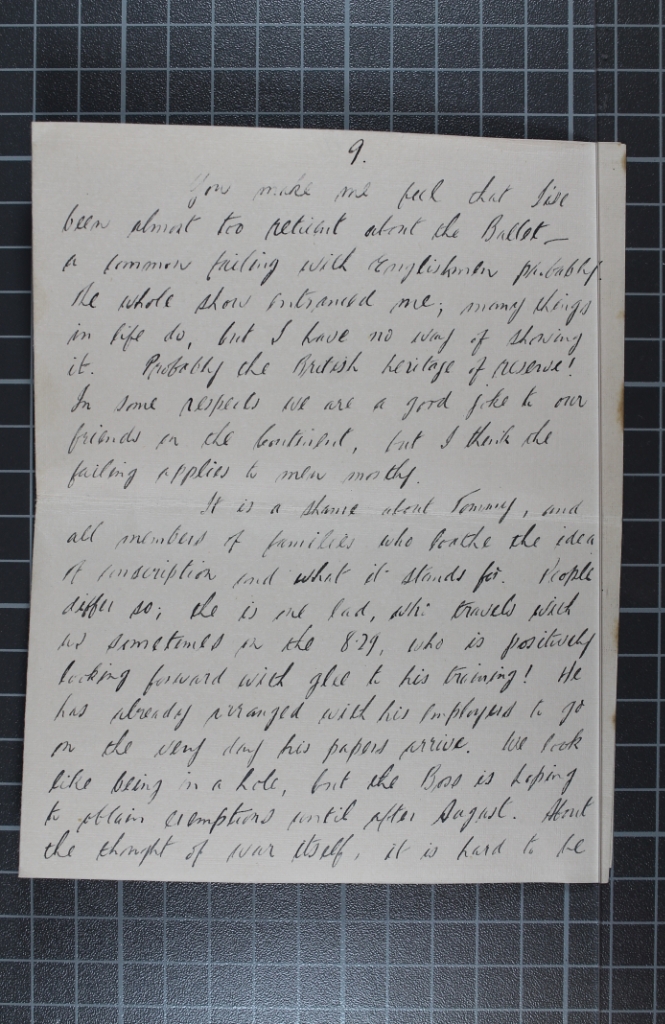 9.
You make me feel that I've
been almost too reticent about the Ballet —
a common failing with Englishmen probably.
The whole show entranced me; many things
in life do, but I have no way of showing
it. Probably the British heritage of reserve!
In some respects we are a good joke to our
friends on the Continent, but I think the
failing applies to men mostly.
It is a shame about Tommy, and
all members of families who loathe the idea
of conscription and what it stands for. People
differ so; there is one lad, who travels with
us sometimes on the 8.29, who is positively
looking forward with glee to his training! He
has already arranged with his employers to go
on the very day his papers arrive. We look
like being in a hole, but the Boss is hoping
to obtain exemptions until after August. About
the thought of war itself, it is hard to be